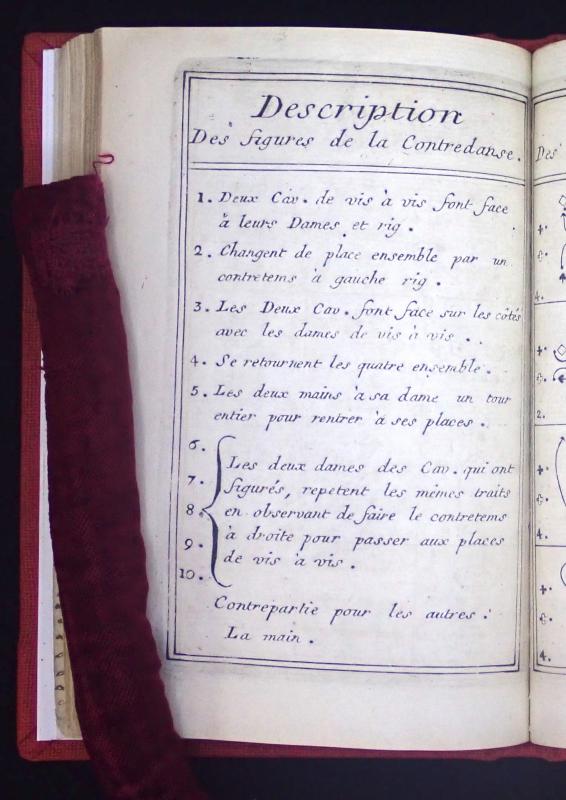 Description
Des figures de la Contredanse.
1. Deux Cav. de vis à vis font face
à leurs Dames et rig.
2. Changent de place ensemble par un
contretems à gauche rig.
3. Les Deux Cav. font face sur les côtés
avec les dames de vis à vis..
4. Se retournent les quatre ensemble.
5. Les deux mains à sa dame un tour
entier pour rentrer à ses places.
6.
7.
8.
9.
10.
Les deux dames des Cav. qui ont
figurés, repetent les mêmes traits
en observant de faire le contretems
à droite pour passer aux places
de vis à vis.
Contrepartie pour les autres:
La main.
Des
4.
4.
2.
4.
4.